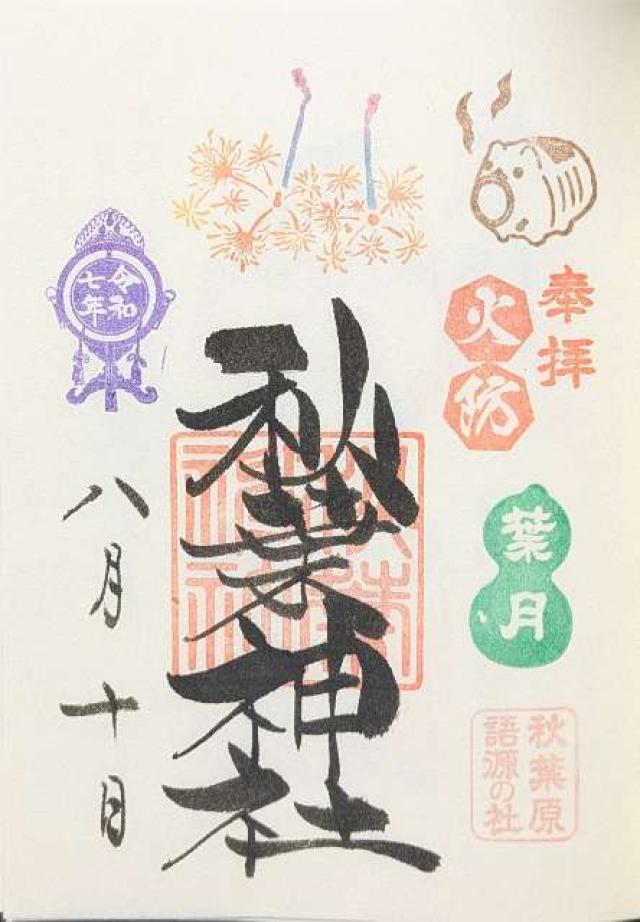 奉拝
火防
葉月
秋葉原
語源の社
秋葉神社
令和
七年
八月十日